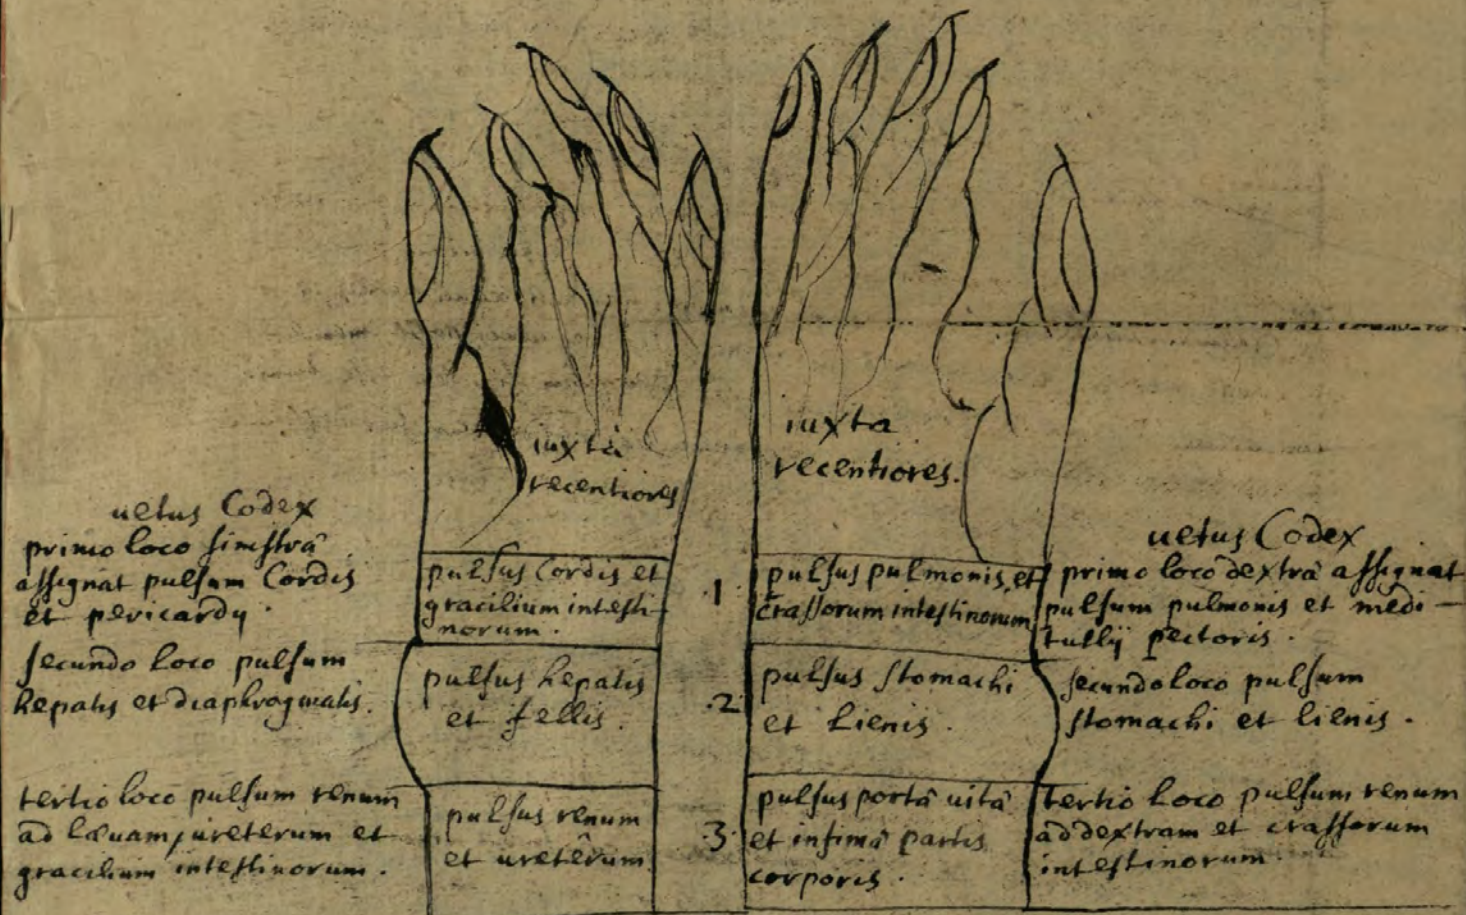 uetus Codex
primo loco sinistrâ
assignat pulsum Cordis
et pericardÿ.
secundo loco pulsum
hepatis et diaphragmatis.
tertio loco pulsum renum
ad læuam, ureterum et
gracilium intestinorum.
iuxtà
recentiores
pulsus Cordis et
gracilium intesti-
norum.
pulsus hepatis
et fellis.
pulsus renum
et ureterum
.1.
.2.
.3.
iuxta
recentiores.
pulsus pulmonis, et
crassorum intestinorum
pulsus stomachi
et Lienis.
pulsus portâ uitâ
et infimâ partis
corporis.
uetus Codex
primo loco dextrâ assignat
pulsum pulmonis et medi-
tullÿ pectoris.
secundo loco pulsum
stomachi et lienis.
tertio loco pulsum renum
ad dextram et crassorum
intestinorum.